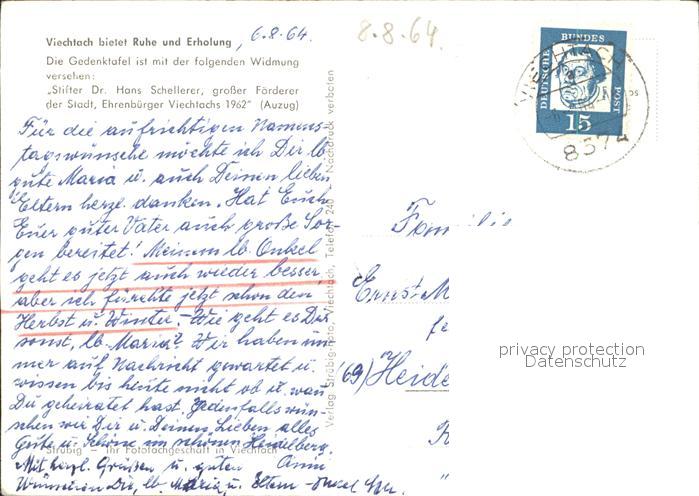 Viechtach bietet Ruhe und Erholung, 6.8.64.
8.8.64.
Die Gedenktafel ist mit der folgenden Widmung
versehen:
„Stifter Dr. Hans Schellerer, großer Förderer
der Stadt, Ehrenbürger Viechtachs 1962" (Auzug)
Für die aufrichtigen Namens-
tagswünsche möchte ich Dir lb.
gute Maria u. auch Deinen lieben
Eltern herzl. danken. Hat Euch
Euer guter Vater auch große Sor-
gen bereitet! Meinem lb. Onkel
geht es jetzt auch wieder besser
aber ich fürchte jetzt schon den
Herbst u. Winter. – Wie geht es Dir
sonst, lb. Maria? Wir haben im-
mer auf Nachricht gewartet u.
wissen bis heute nicht ob u. wann
Du geheiratet hast. Jedenfalls wün-
schen wir Dir u. Deinen Lieben alles
Gute u. Schöne im schönen Heidelberg.
Strübig – Ihr Fotofachgeschäft in Viechtach
Mit herzl. Grüßen u. guten Anni
Wünschen Dir, lb. Maria u. Eltern
Verlag Strübig-Foto, Viechtach, Telefon 240 Nachdruck verboten
DEUTSCHE BUNDESPOST
15
VIECHTACH
8374
Fam
Ernst M
(69) Heide
privacy protection
Datenschutz